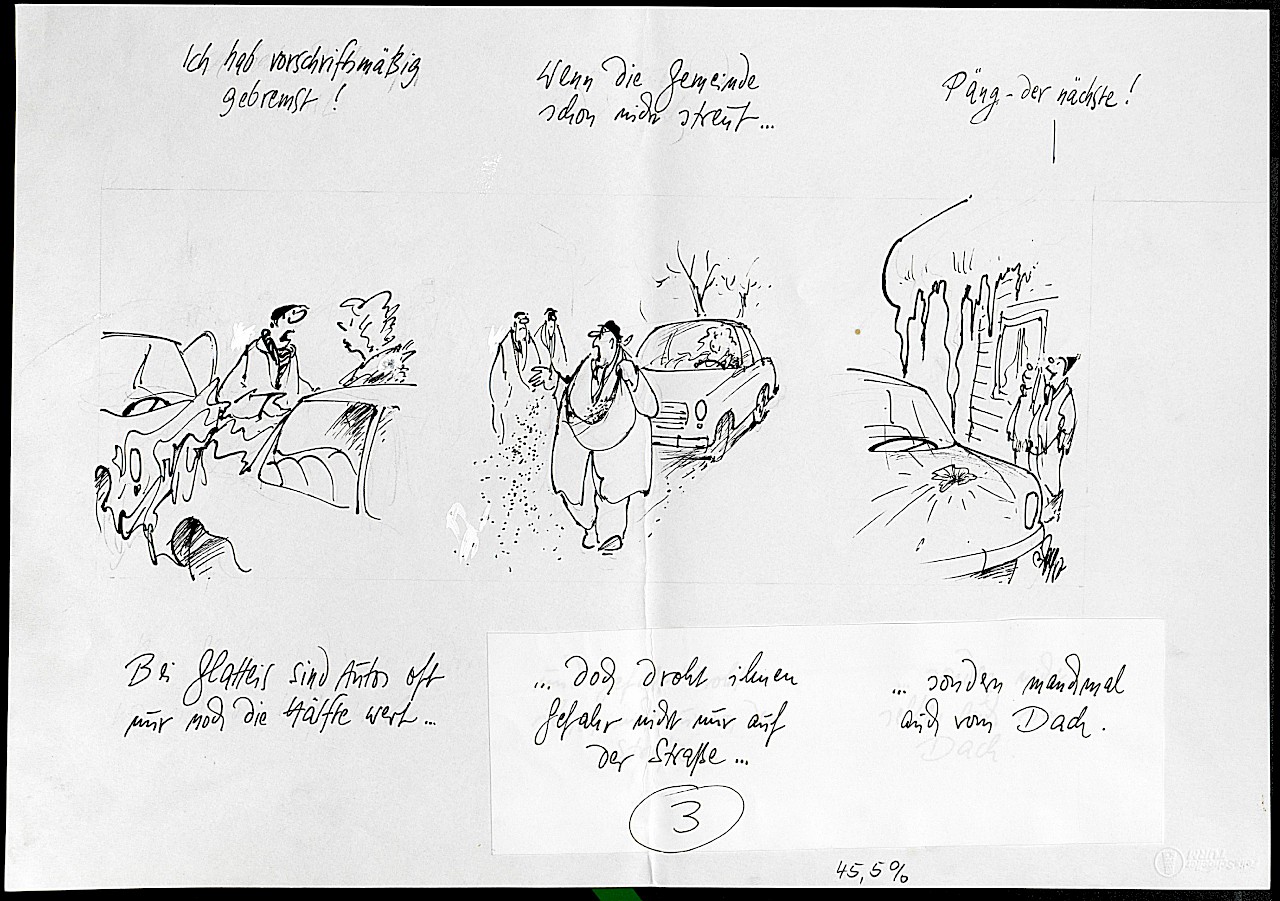 Ich hab vorschriftsmäßig
gebremst!
Wenn die Gemeinde
schon nicht streut...
Päng - der nächste!
Bei Glatteis sind Autos oft
nur noch die Hälfte wert...
... doch droht ihnen
Gefahr nicht nur auf
der Straße...
... sondern manchmal
auch vom Dach.
3
45,5%